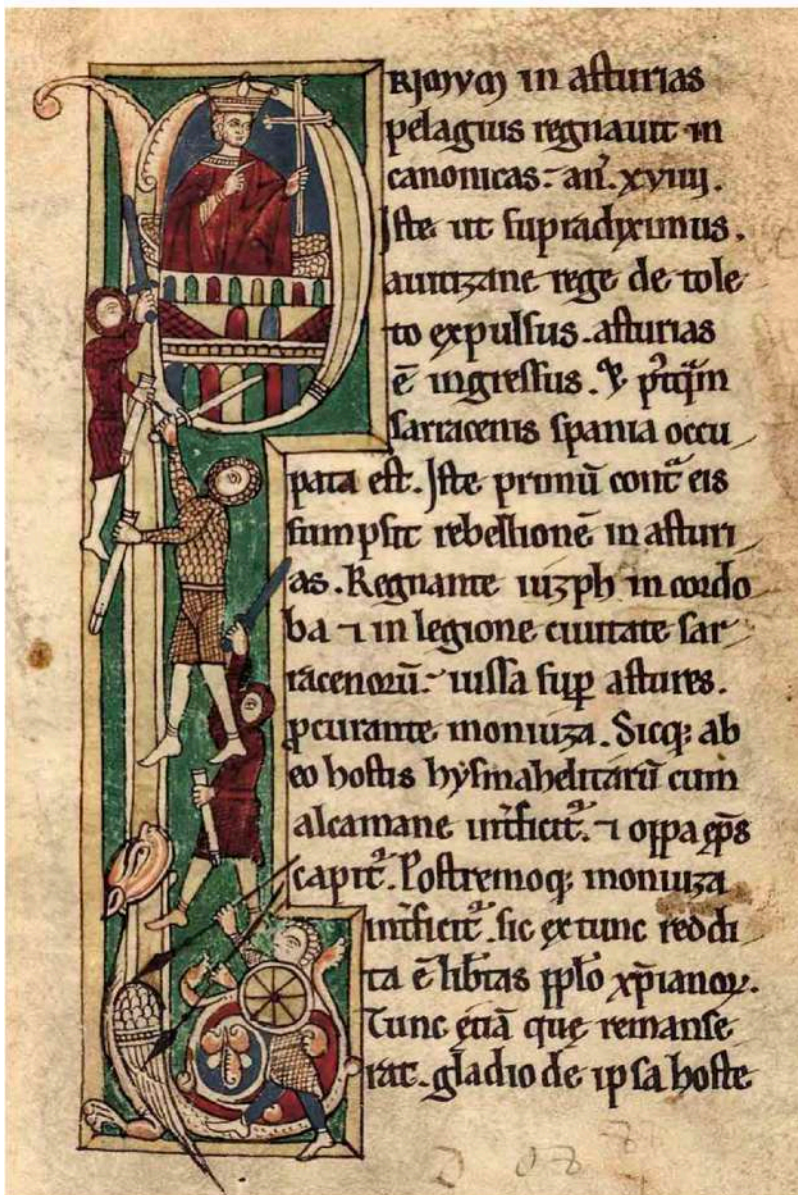 PRIMUM in asturias
pelagius regnauit in
canonicas. an̄. xviiij.
Iste ut supradiximus.
auitizane rege de tole
to expulsus. asturias
ē ingressus. 
sarracenis spania occu
pata est. Iste primū cont̄ eis
sumpsit rebellionē in asturi
as. Regnante iuzph in cordo
ba ⁊ in legione ciuitate sar
racenoꝝū. iussa sup astures.
ꝓcurante moniuza. Sicq; ab
eo hostis hysmahelitarū cum
alcamane int̄ficit̄. ⁊ oppa ep̄s
capit̄. Postremoq; moniuza
int̄ficit̄. sic ex tunc reddi
ta ē lib̄tas pplo xp̄ianoꝝ.
Tunc etiā que remanse
rat. gladio de ipsa hoste